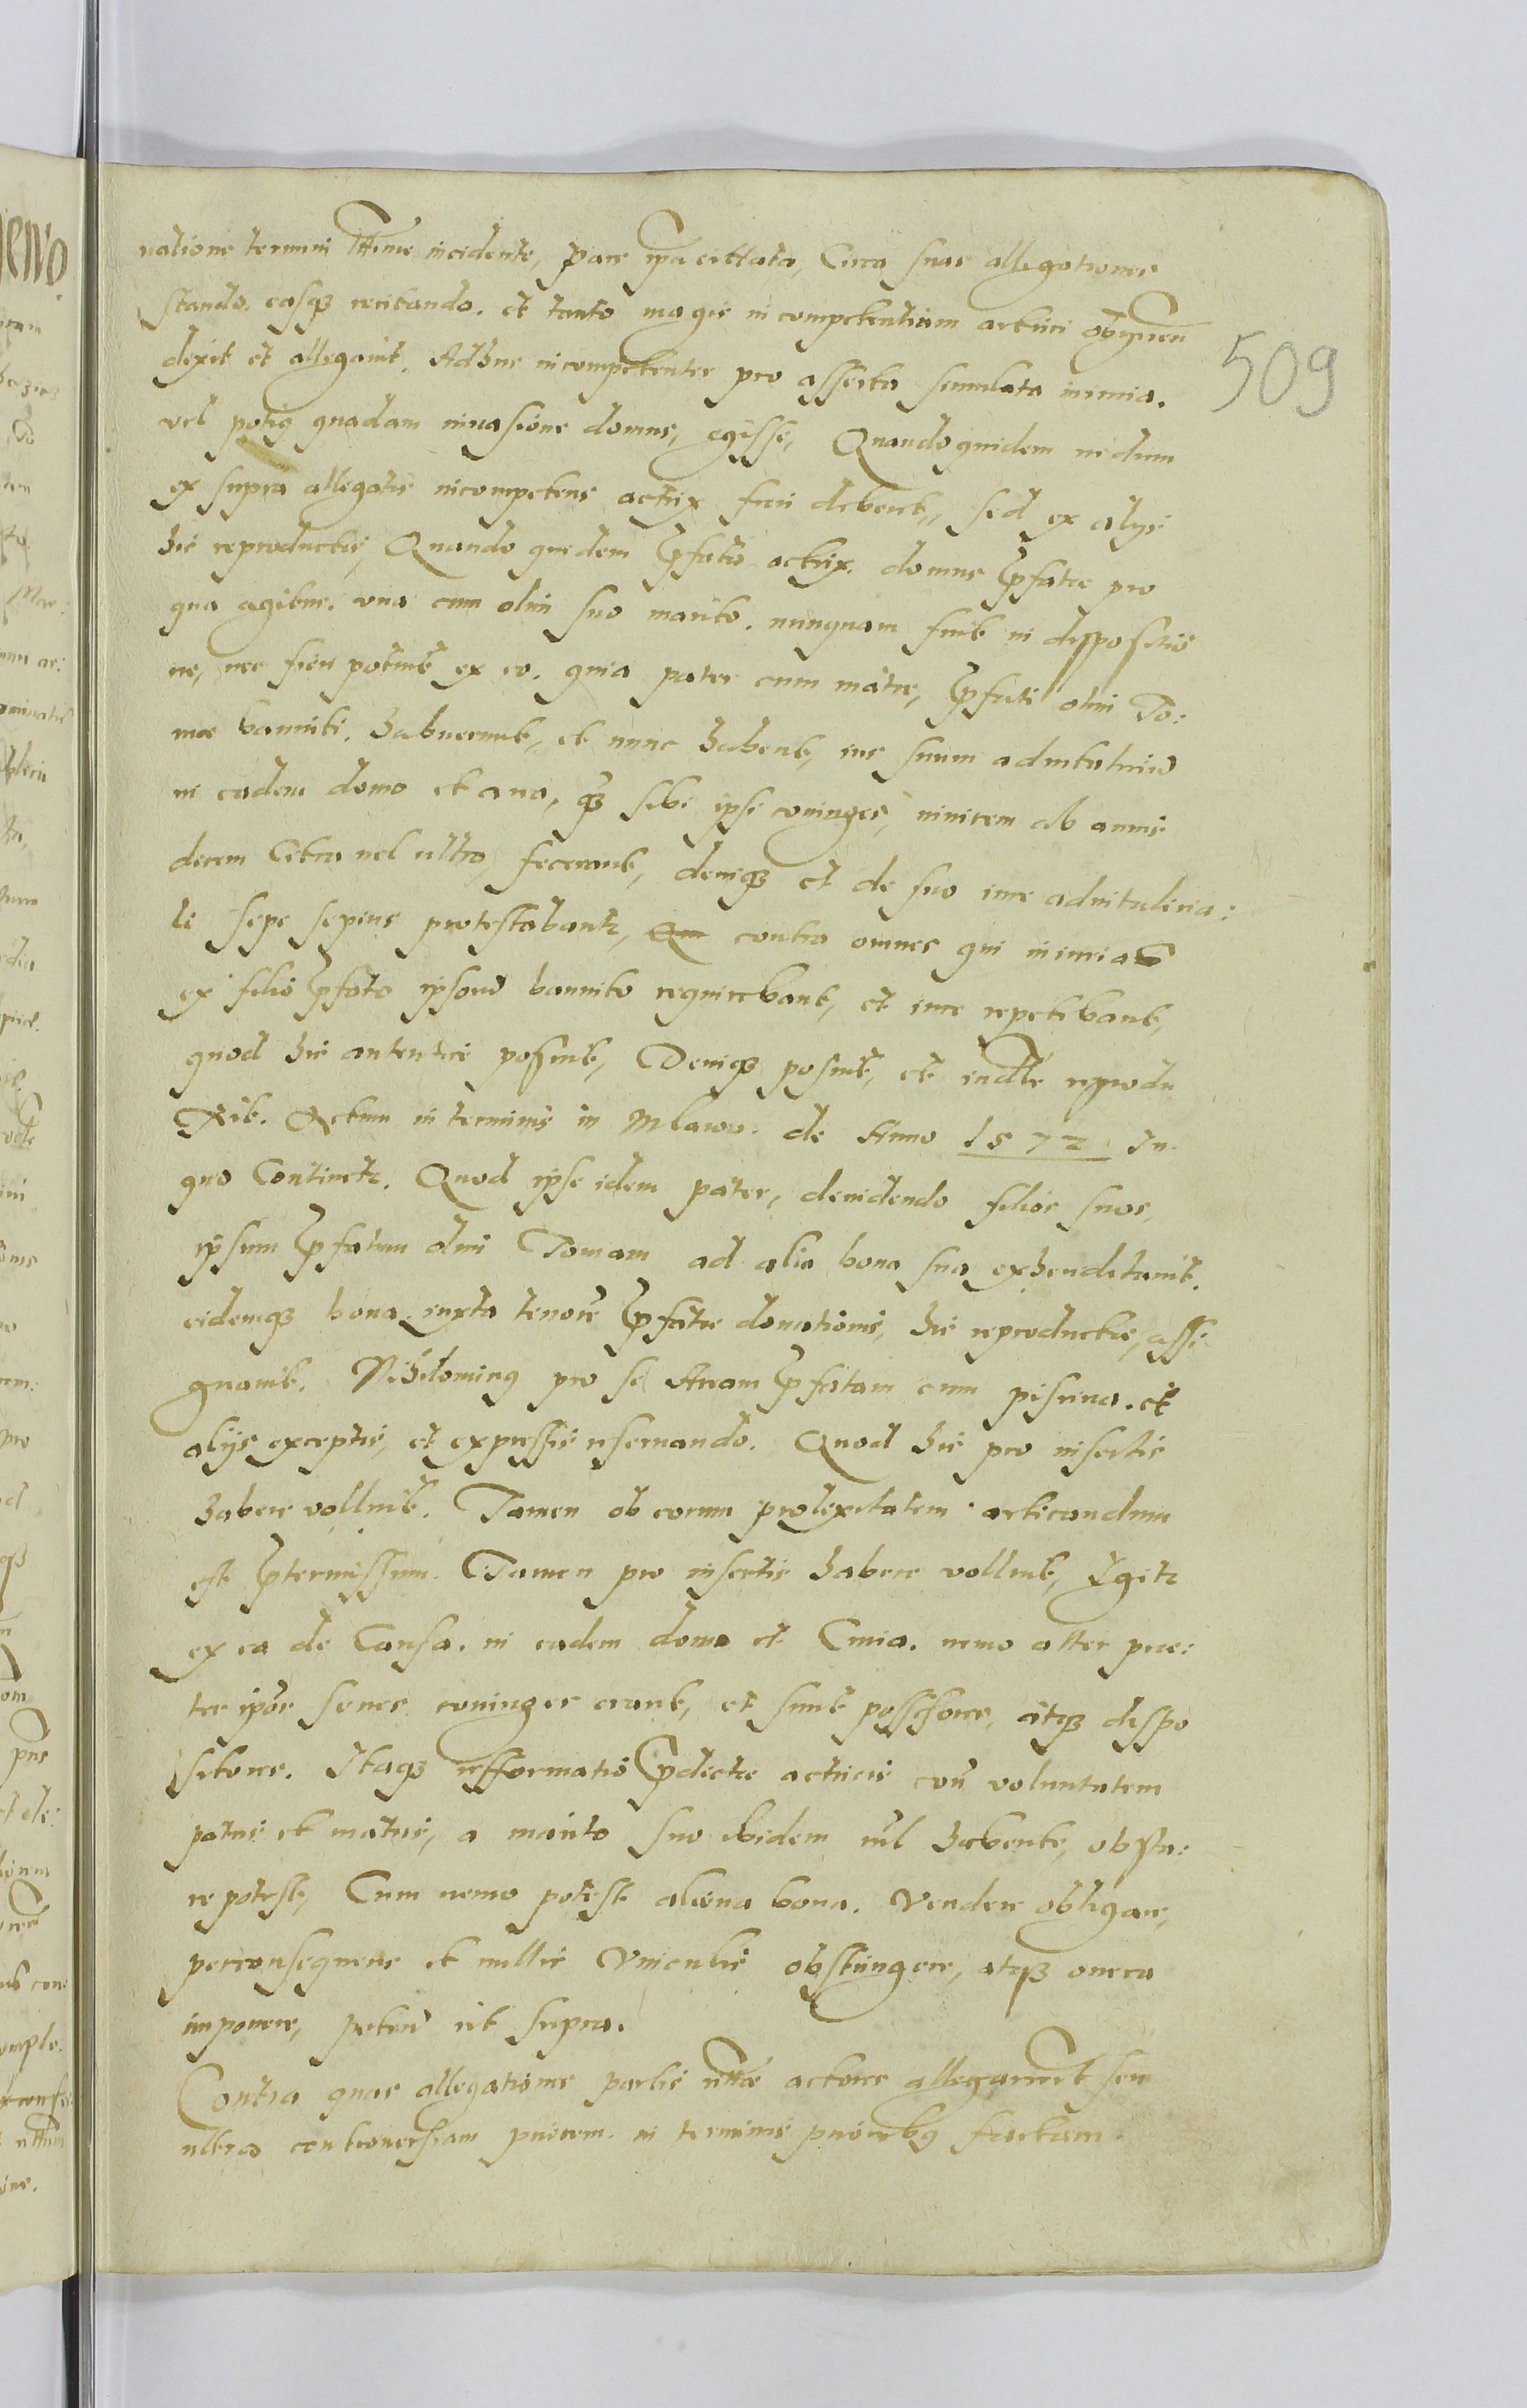 ratione termini incidente, pars ipsa cittata, Circa suas allegationes
stando. easq3 recitando. et tanto magis incompetentiam actrici
dixit et allegauit. Adhuc incompetenter pro asserta simulata iniuria.
vel potius quadam inuasione domus, egisse, Quandoquidem nedum
ex supra allegatis incompetens actrix fieri deberet, sed ex alijs
hic reproductis, Quando quidem pfata actrix. domus pfatae pro
qua agitur. vna cum olim suo marito. nunquam fuit in dispositio
ne, nec fieri potuit ex eo. quia pater cum matre, pfati olim To:
mae banniti. habuerunt, et nunc habent, ius suum aduitaliciu
in eadem domo et area, q3 sibi ipsi coniuges, inuicem ab annis
decem Citra vel ultra, fecerant, deniq3 et de suo iure aduitalicia:
li sepe sepius protestabantr, contra omnes qui iniurias
ex filio pfato ipsoru bannito requirebant, et iure repetebant,
quod hic autentice posuit, Deniq3 posuit, et reprodu
xit. Actum in terminis in Mlawa. de Anno 1572 In
quo Continetr. Quod ipse idem pater, deuidendo filios suos,
ipsum pfatum olim Tomam ad alia bona sua exhereditauit.
eidemq3 bona iuxta tenore pfatae donationis, hic reproductae, assi
gnauit. Nihilominus pro se Aream pfatam cum piscina. et
alijs exceptis, et expressis reseruando. Quod hic pro insertis
habere volluit. Tamen ob eorum prolexitatem articandum
est ptermissum. Tamen pro insertis habere volluit, Igitr
ex ea de Causa. in eadem domo et Curia. nemo alter prae:
ter ipos senes coniuges erant, et sunt possessores, atq3 dispo
sitores. Itaq3 refformatio pdictae actricis con voluntatem
patris et matris, a marito suo ibidem nil habente, obsta:
re potest, Cum nemo potest aliena bona. vendere obligare,
perconsequens et nullis vinculis obstringere, atq3 onera
imponere, petiu ut supra.
Contra quas allegationes partis actores allegauerut seu
ultra controuersiam priorem. in terminis priorib9 factam.
509